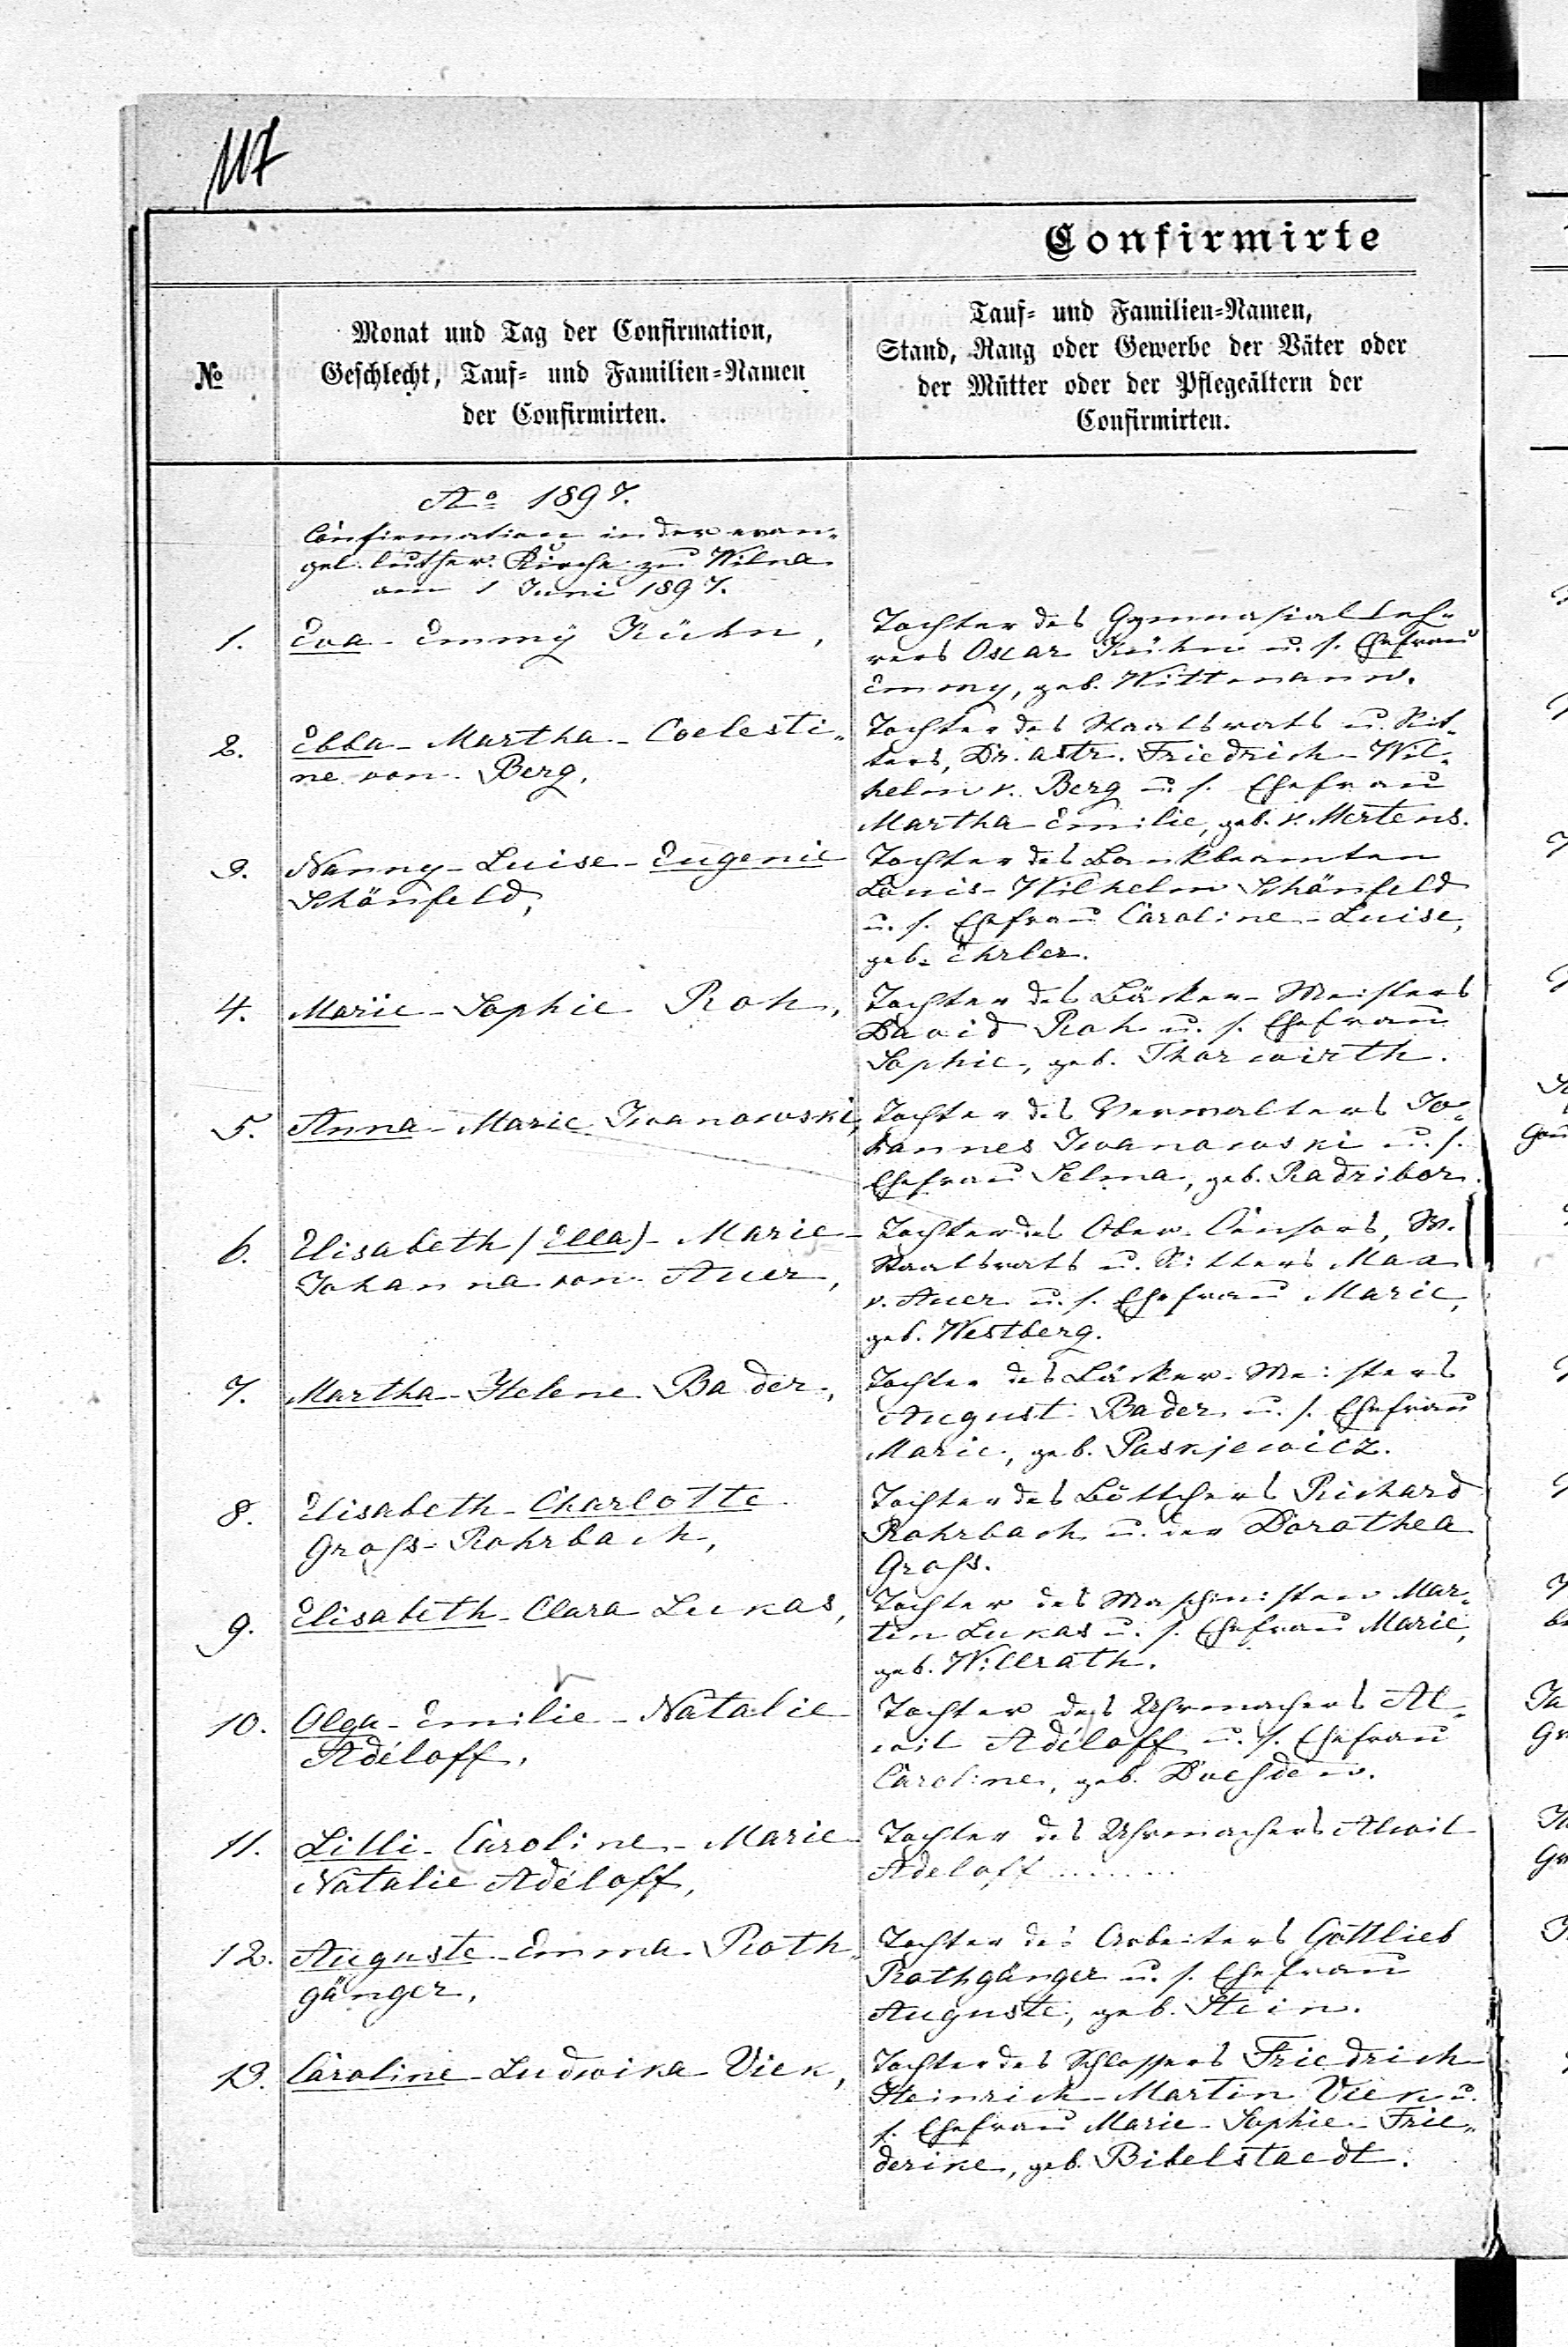 117
Confirmirte
№
Monat und Tag der Confirmation,
Geschlecht, Tauf- und Familien-Namen
der Confirmirten.
Tauf- und Familien-Namen,
Stand, Rang oder Gewerbe der Väter oder
der Mütter oder der Pflegeältern der
Confirmirten.
Ao 1897.
Confirmation in der evan-
gel. luther. Kirche zu Wilna
am 1 Juni 1897.
1.
Eva-Emmy Kühn,
Tochter des Gymnasialleh-
rers Oscar Kühn u. s. Ehefrau
Emmy, geb. Wittmann.
2.
Ebba-Martha-Coelesti-
ne von Berg,
Tochter des Staatsraths u. Rit-
ters, Dr. astr. Friedrich-Wil-
helm v. Berg u. s. Ehefrau
Martha Emilie, geb. v. Mertens.
3.
Nanny-Luise-Eugenie
Schönfeld,
Tochter des Bankbeamten
Louis-Wilhelm Schönfeld
u. s. Ehefrau Caroline-Luise,
geb. Ehrler.
4.
Marie-Sophie Roh,
Tochter des Bäcker-Meisters
David Roh u. s. Ehefrau
Sophie, geb. Thorwirth.
5.
Anna-Marie Iwanowski,
Tochter des Verwalters Jo-
hannes Iwanowski u. s.
Ehefrau Selma, geb. Radzibor.
6.
Elisabeth (Ella)-Marie-
Johanna von Auer,
Tochter des Ober-Censors, W.
Staatsraths u. Ritters Max
v. Auer u. s. Ehefrau Marie,
geb. Westberg.
7.
Martha-Helene Bader,
Tochter des Bäcker-Meisters
August Bader u. s. Ehefrau
Marie, geb. Paskjewicz.
8.
Elisabeth-Charlotte
Groß-Rohrbach,
Tochter des Böttchers Richard
Rohrbach u. der Dorothea
Groß.
9.
Elisabeth-Clara Lukas,
Tochter des Maschinisten Mar-
tin Lukas u. s. Ehefrau Marie,
geb. Willrath.
10.
Olga-Emilie-Natalie
Adéloff,
Tochter des Uhrmachers Al-
wil Adéloff u. s. Ehefrau
Caroline, geb.
11.
Lilli-Caroline-Marie
Natalie Adéloff,
Tochter des Uhrmachers Alwil
Adeloff ........
12.
Auguste-Emma Roth-
gänger,
Tochter des Arbeiters Gottlieb
Rothgänger u. s. Ehefrau
Auguste, geb. Stein.
13.
Caroline-Ludwika Viek,
Tochter des Schlossers Friedrich
Heinrich-Martin Viek u.
s. Ehefrau Marie-Sophie-Frie-
derike, geb. Bibelstaedt.